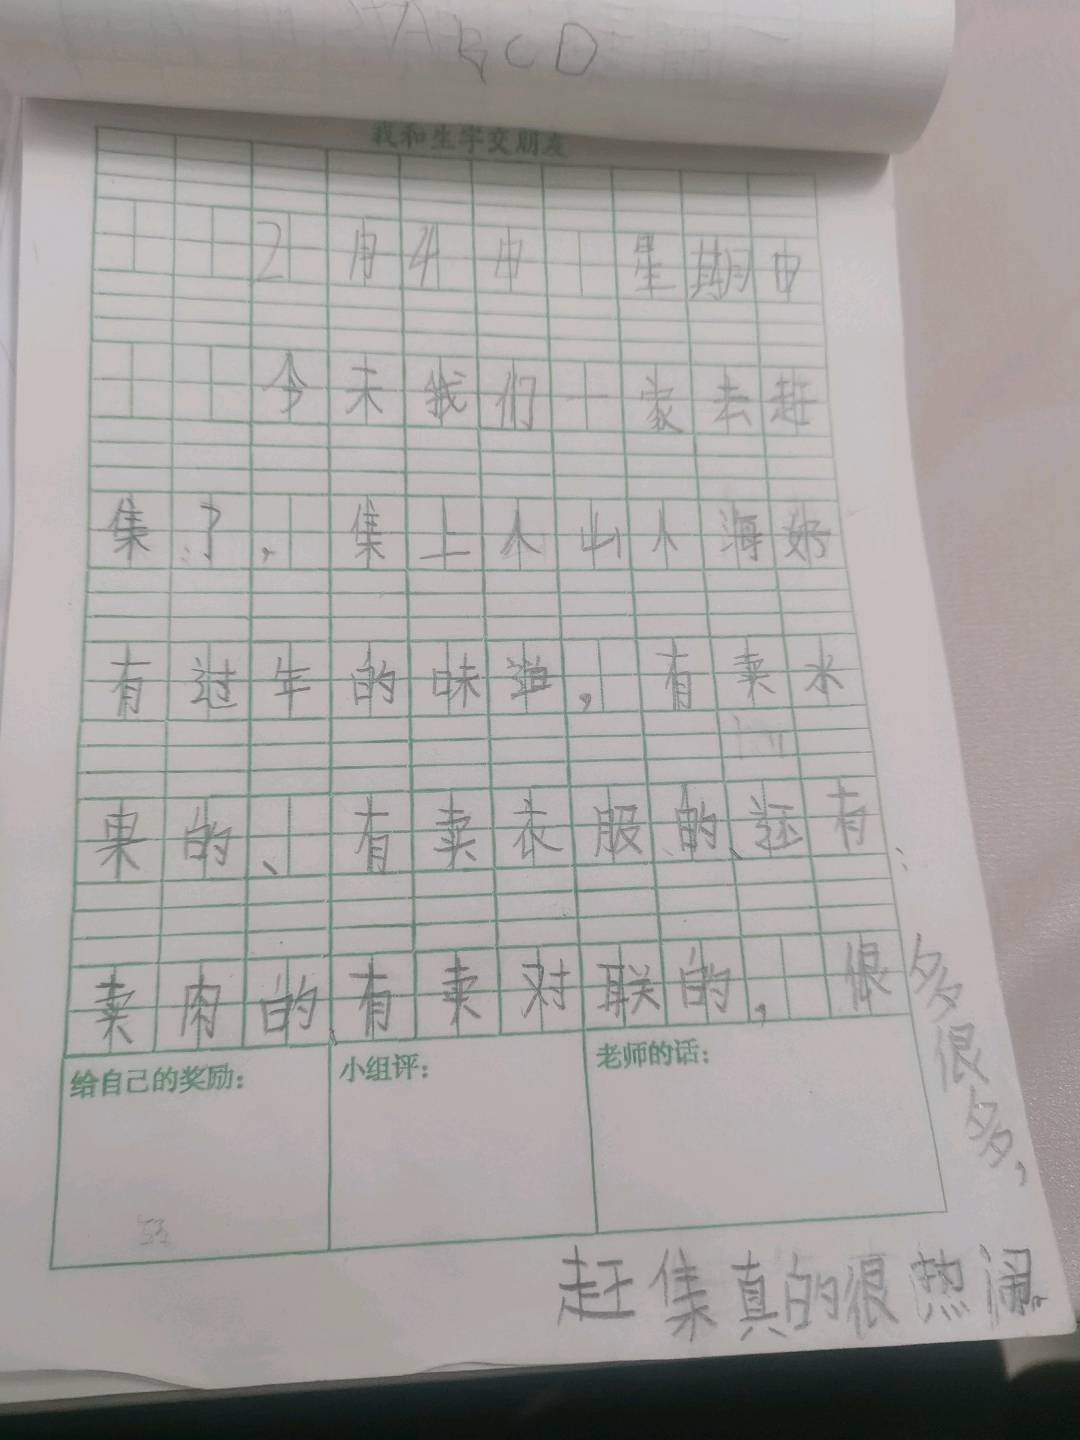 ABCD
我和生字交朋友
2月4日 星期日
今天我们一家去赶
集了, 集上人山人海好
有过年的味道, 有卖水
果的、有卖衣服的、还有
卖肉的、有卖对联的, 很
多很多,
赶集真的很热闹。
给自己的奖励:
小组评:
老师的话: